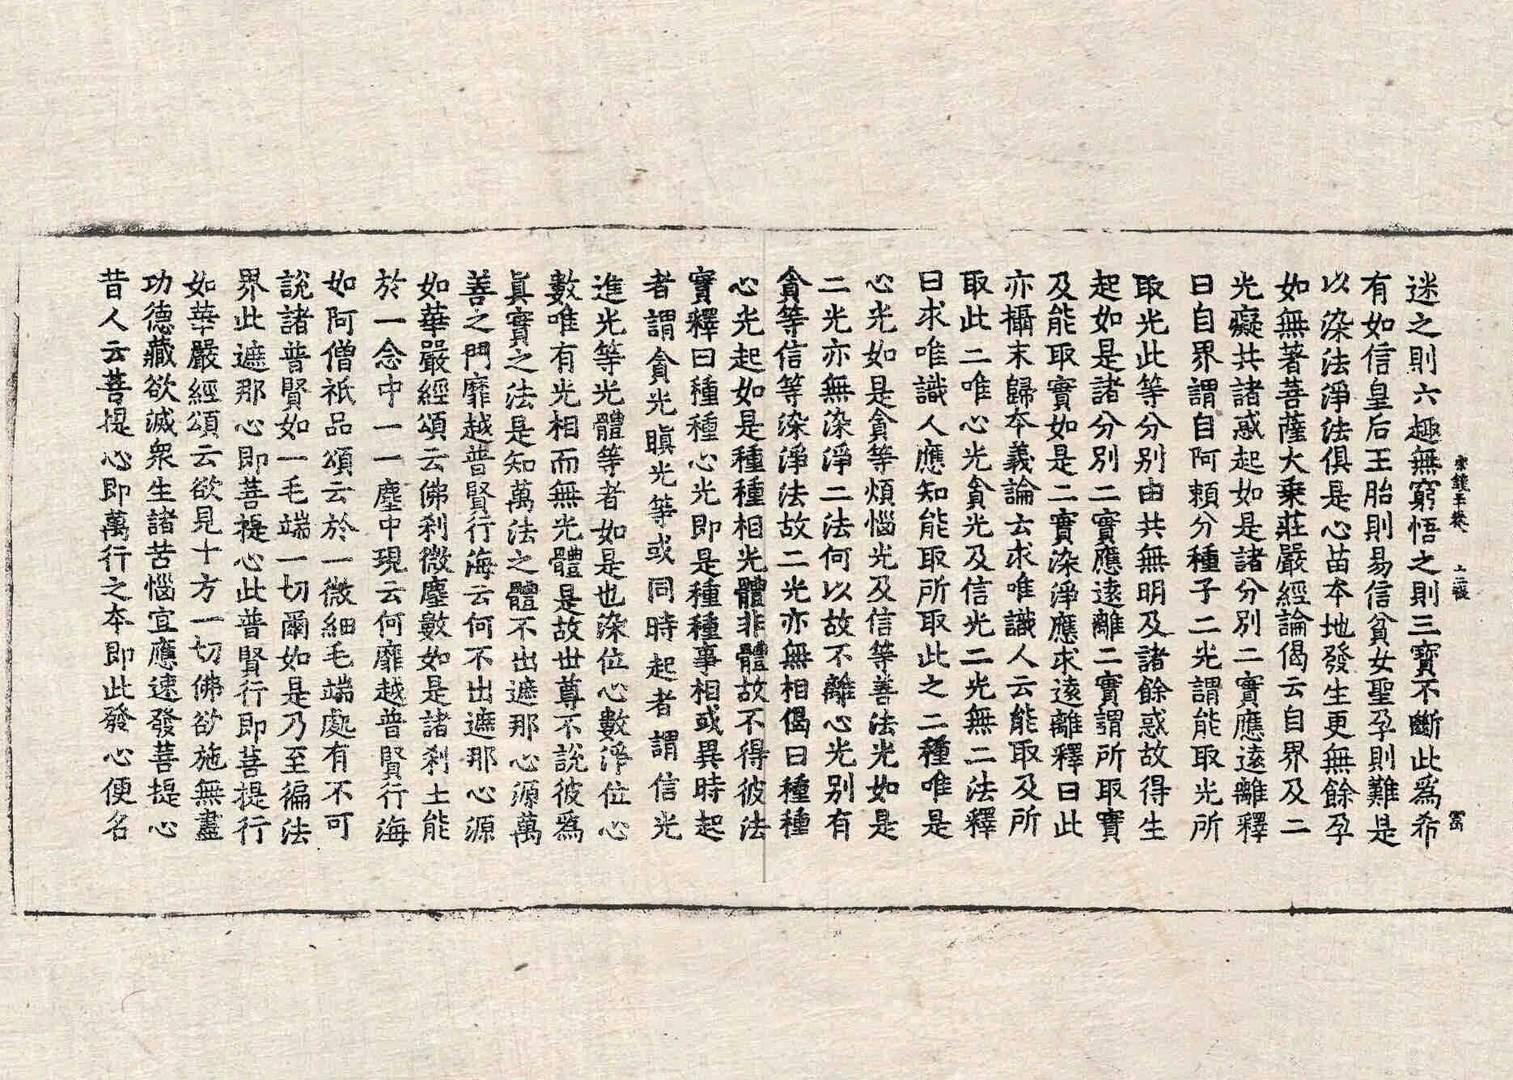 迷之則六趣無窮悟之則三寶不斷此爲希
宗鏡
有如信皇后王胎則易信貧女聖孕則難是
以染法淨法俱是心苗本地發生更無餘孕
如無著菩薩大乘莊嚴經論偈云自界及二
光癡共諸惑起如是諸分別二實應遠離釋
曰自界謂自阿頼分種子二光謂能取光所
取光此等分別由共無明及諸餘惑故得生
起如是諸分別二實應遠離二實謂所取實
及能取實如是二實染淨應求遠離釋曰此
亦攝末歸本義論云求唯識人云能取及所
取此二唯心光貪光及信光二光無二法釋
曰求唯識人應知能取所取此之二種唯是
心光如是貪等煩惱光及信等善法光如是
二光亦無染淨二法何以故不離心光别有
貪等信等染淨法故二光亦無相偈曰種種
心光起如是種種相光體非體故不得彼法
實釋曰種種心光即是種種事相或異時起
者謂貪光瞋光等或同時起者謂信光
進光等光體等者如是也染位心數淨位心
數唯有光相而無光體是故世尊不說彼爲
眞實之法是知萬法之體不出遮那心源萬
善之門靡越普賢行海云何不出遮那心源
如華嚴經頌云佛刹微塵數如是諸刹土能
於一念中一一塵中現云何靡越普賢行海
如阿僧祇品頌云於一微細毛端處有不可
說諸普賢如一毛端一切爾如是乃至徧法
界此遮那心即菩提心此普賢行即菩提行
如華嚴經頌云欲見十方一切佛欲施無盡
功德藏欲滅衆生諸苦惱宜應速發菩提心
昔人云菩提心即萬行之本即此發心便名